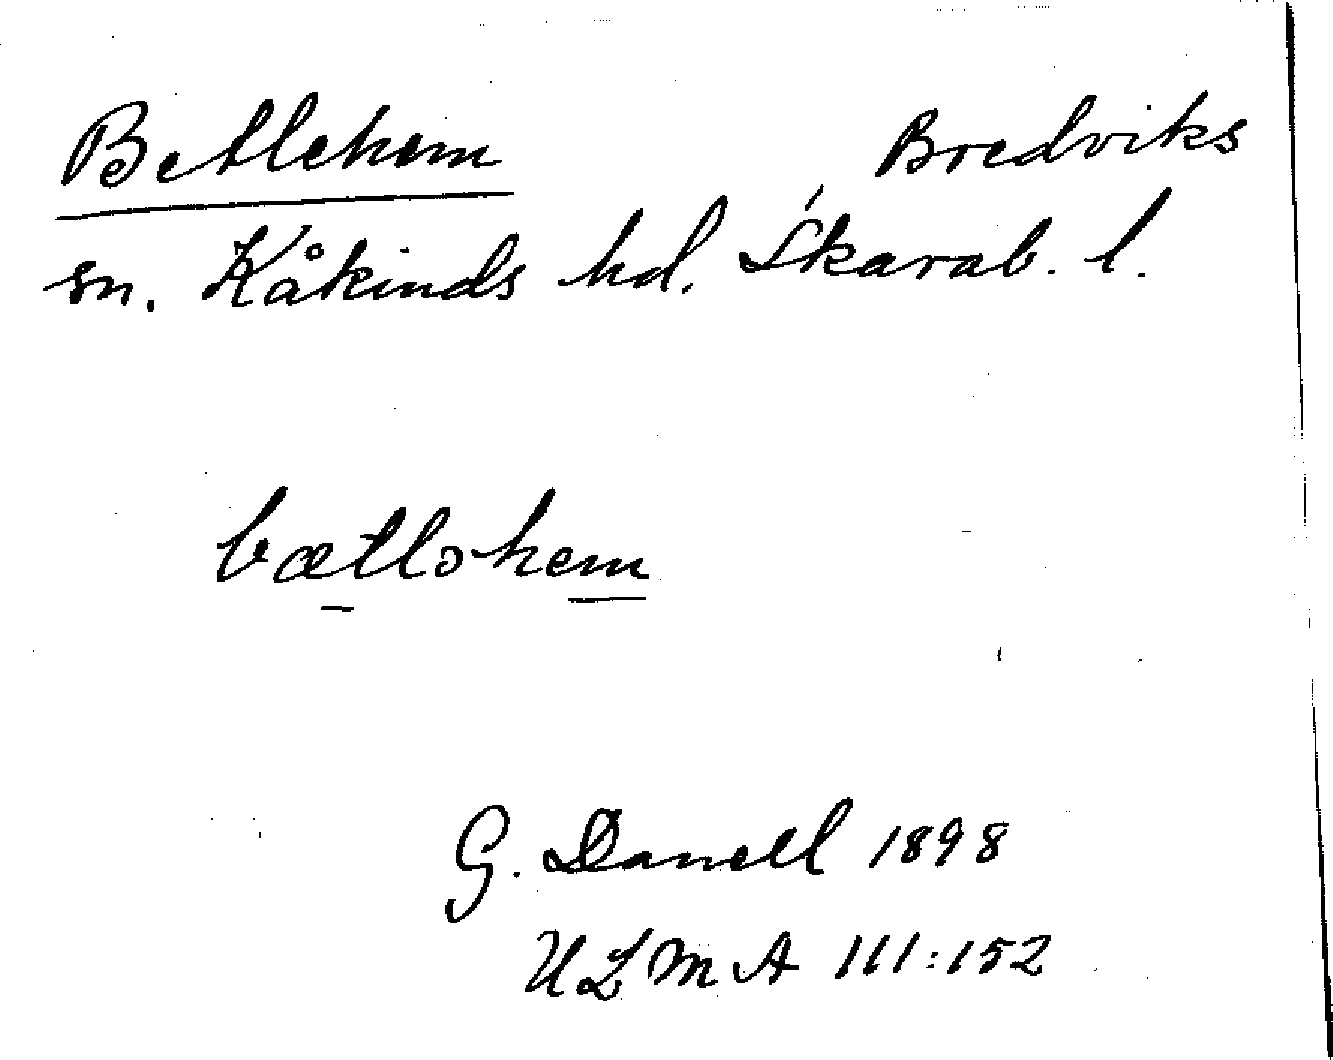 Betlehem Bredviks
sn. Kåkinds hd. Skarab. l.
bætlohem
G. Danell 1898
ULMA 111:152